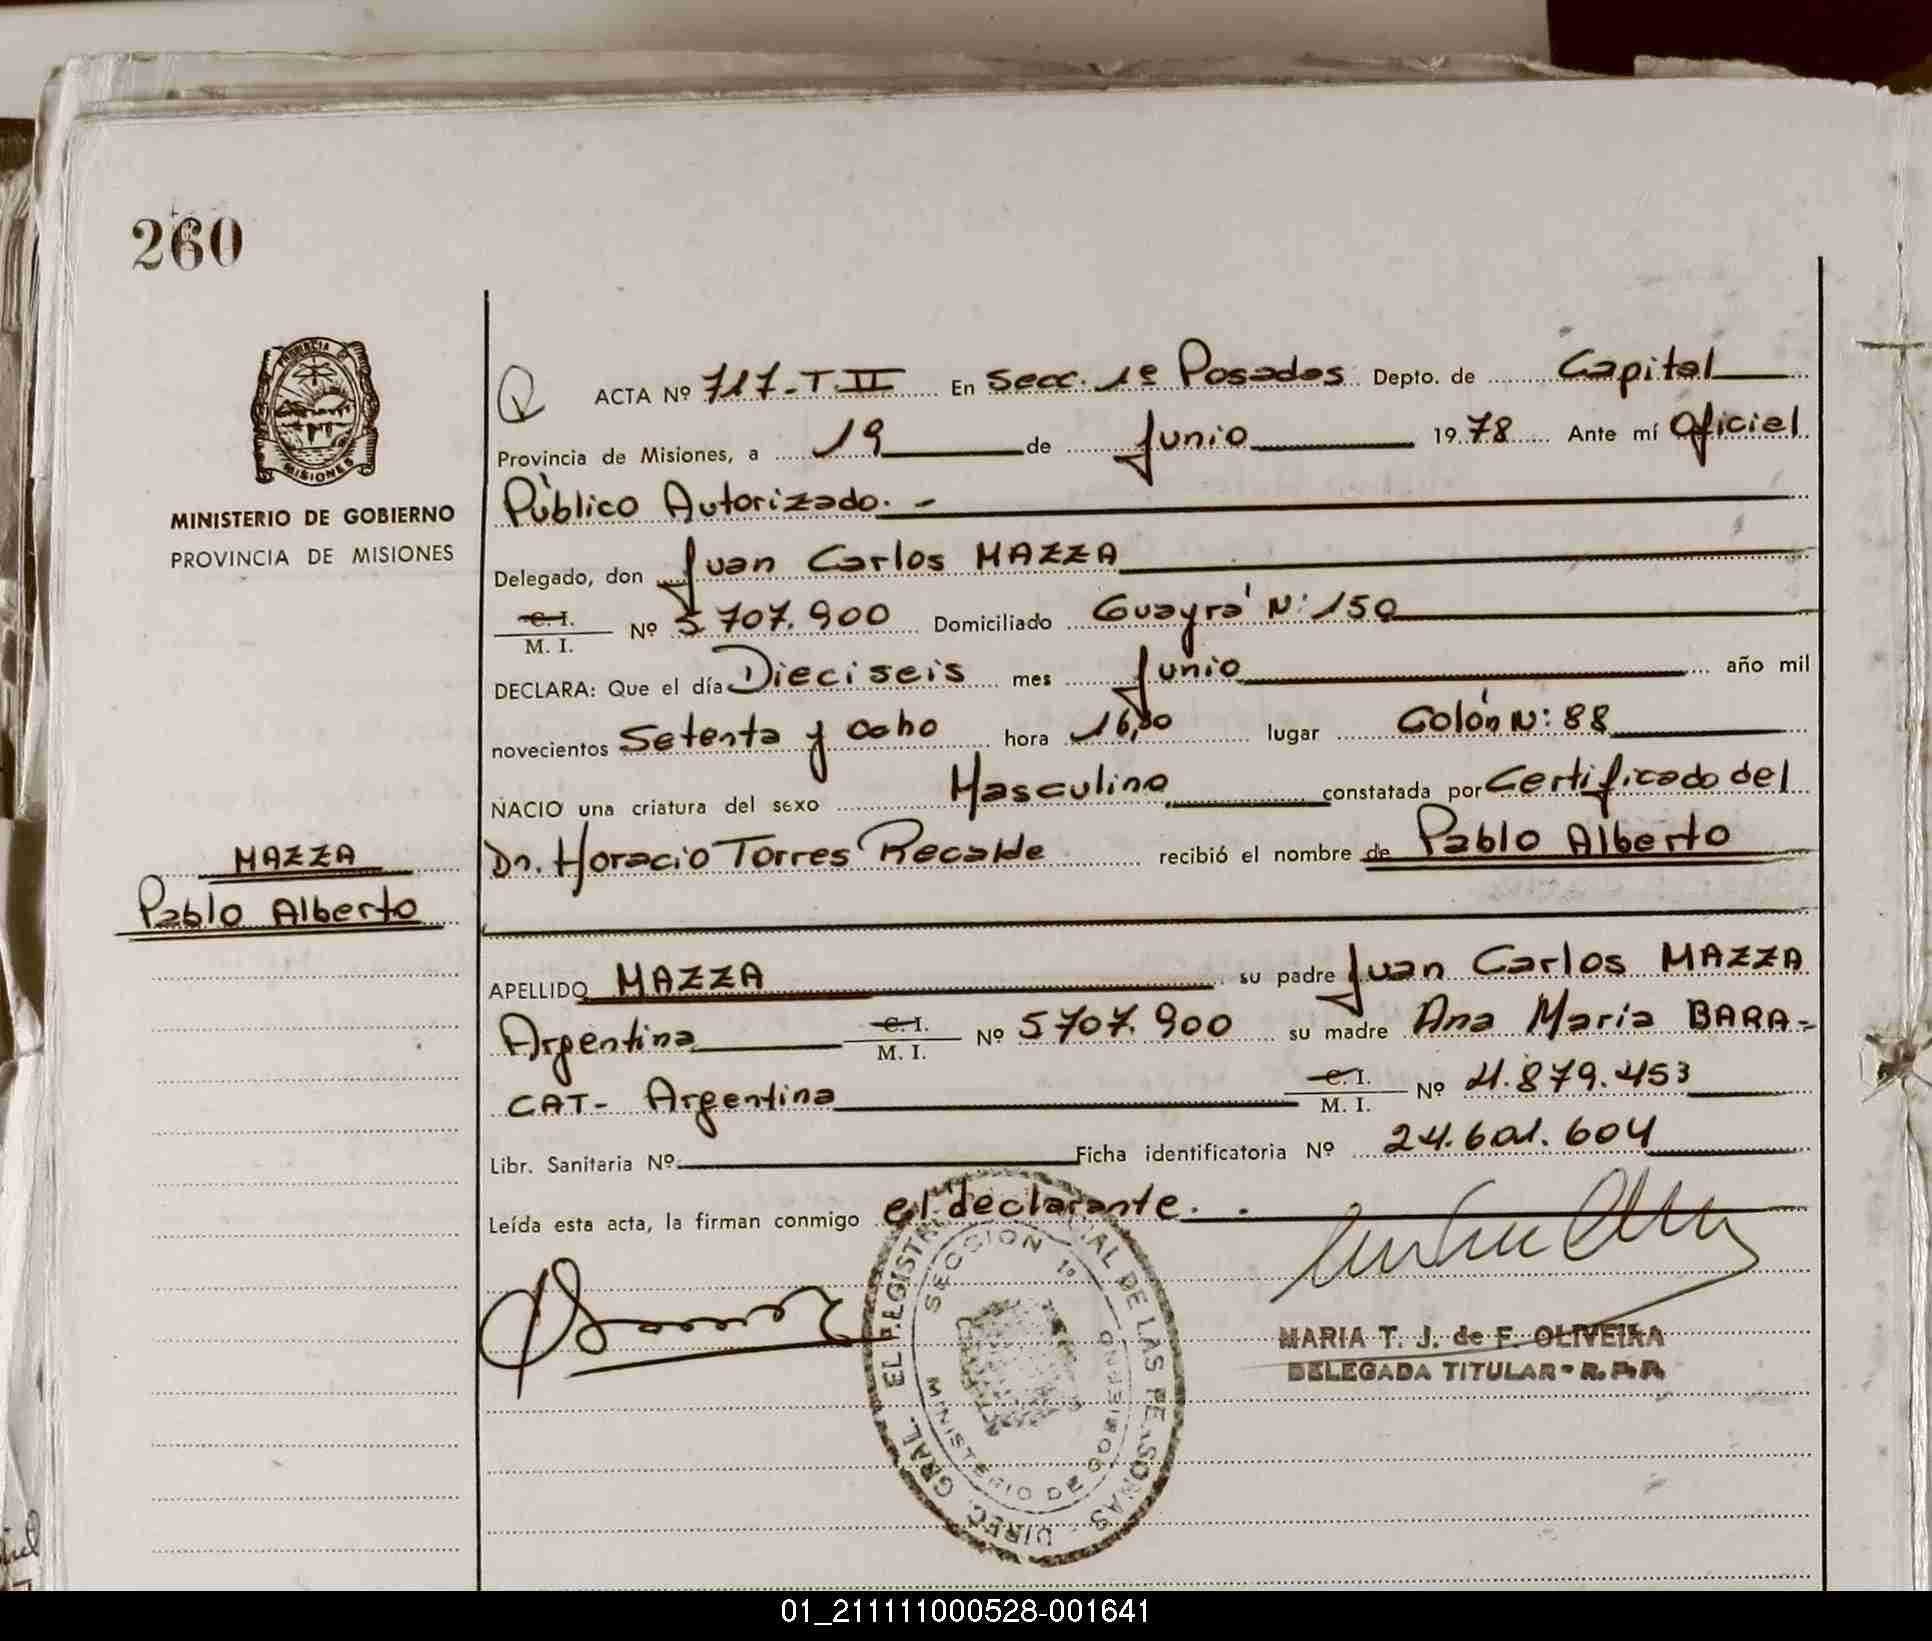 260
PROVINCIA DE
MISIONES
MINISTERIO DE GOBIERNO
PROVINCIA DE MISIONES
MAZZA
Pablo Alberto
ACTA Nº 717-T.II En Secc. 1º Posadas Depto. de Capital
Provincia de Misiones, a 19 de Junio 1978 Ante mí Oficiel
Público Autorizado. -
Delegado, don Juan Carlos MAZZA
C. I.
M. I. Nº 5707.900 Domiciliado Guayrá Nº 150
DECLARA: Que el día Dieciseis mes Junio año mil
novecientos Setenta y ocho hora 16,30 lugar Colón Nº: 88
NACIO una criatura del sexo Masculino constatada por Certificado del
Dr. Horacio Torres Recalde recibió el nombre de Pablo Alberto
APELLIDO MAZZA su padre Juan Carlos MAZZA
Argentina C. I.
M. I. Nº 5707.900 su madre Ana Maria BARA-
CAT- Argentina C. I.
M. I. Nº 4.879.453
Libr. Sanitaria Nº Ficha identificatoria Nº 24.601.604
Leída esta acta, la firman conmigo el declarante.
SECCION 1º
MINISTERIO DE GOBIERNO
MARIA T. J. de F. OLIVEIRA
DELEGADA TITULAR - R. P. P.
01_211111000528-001641